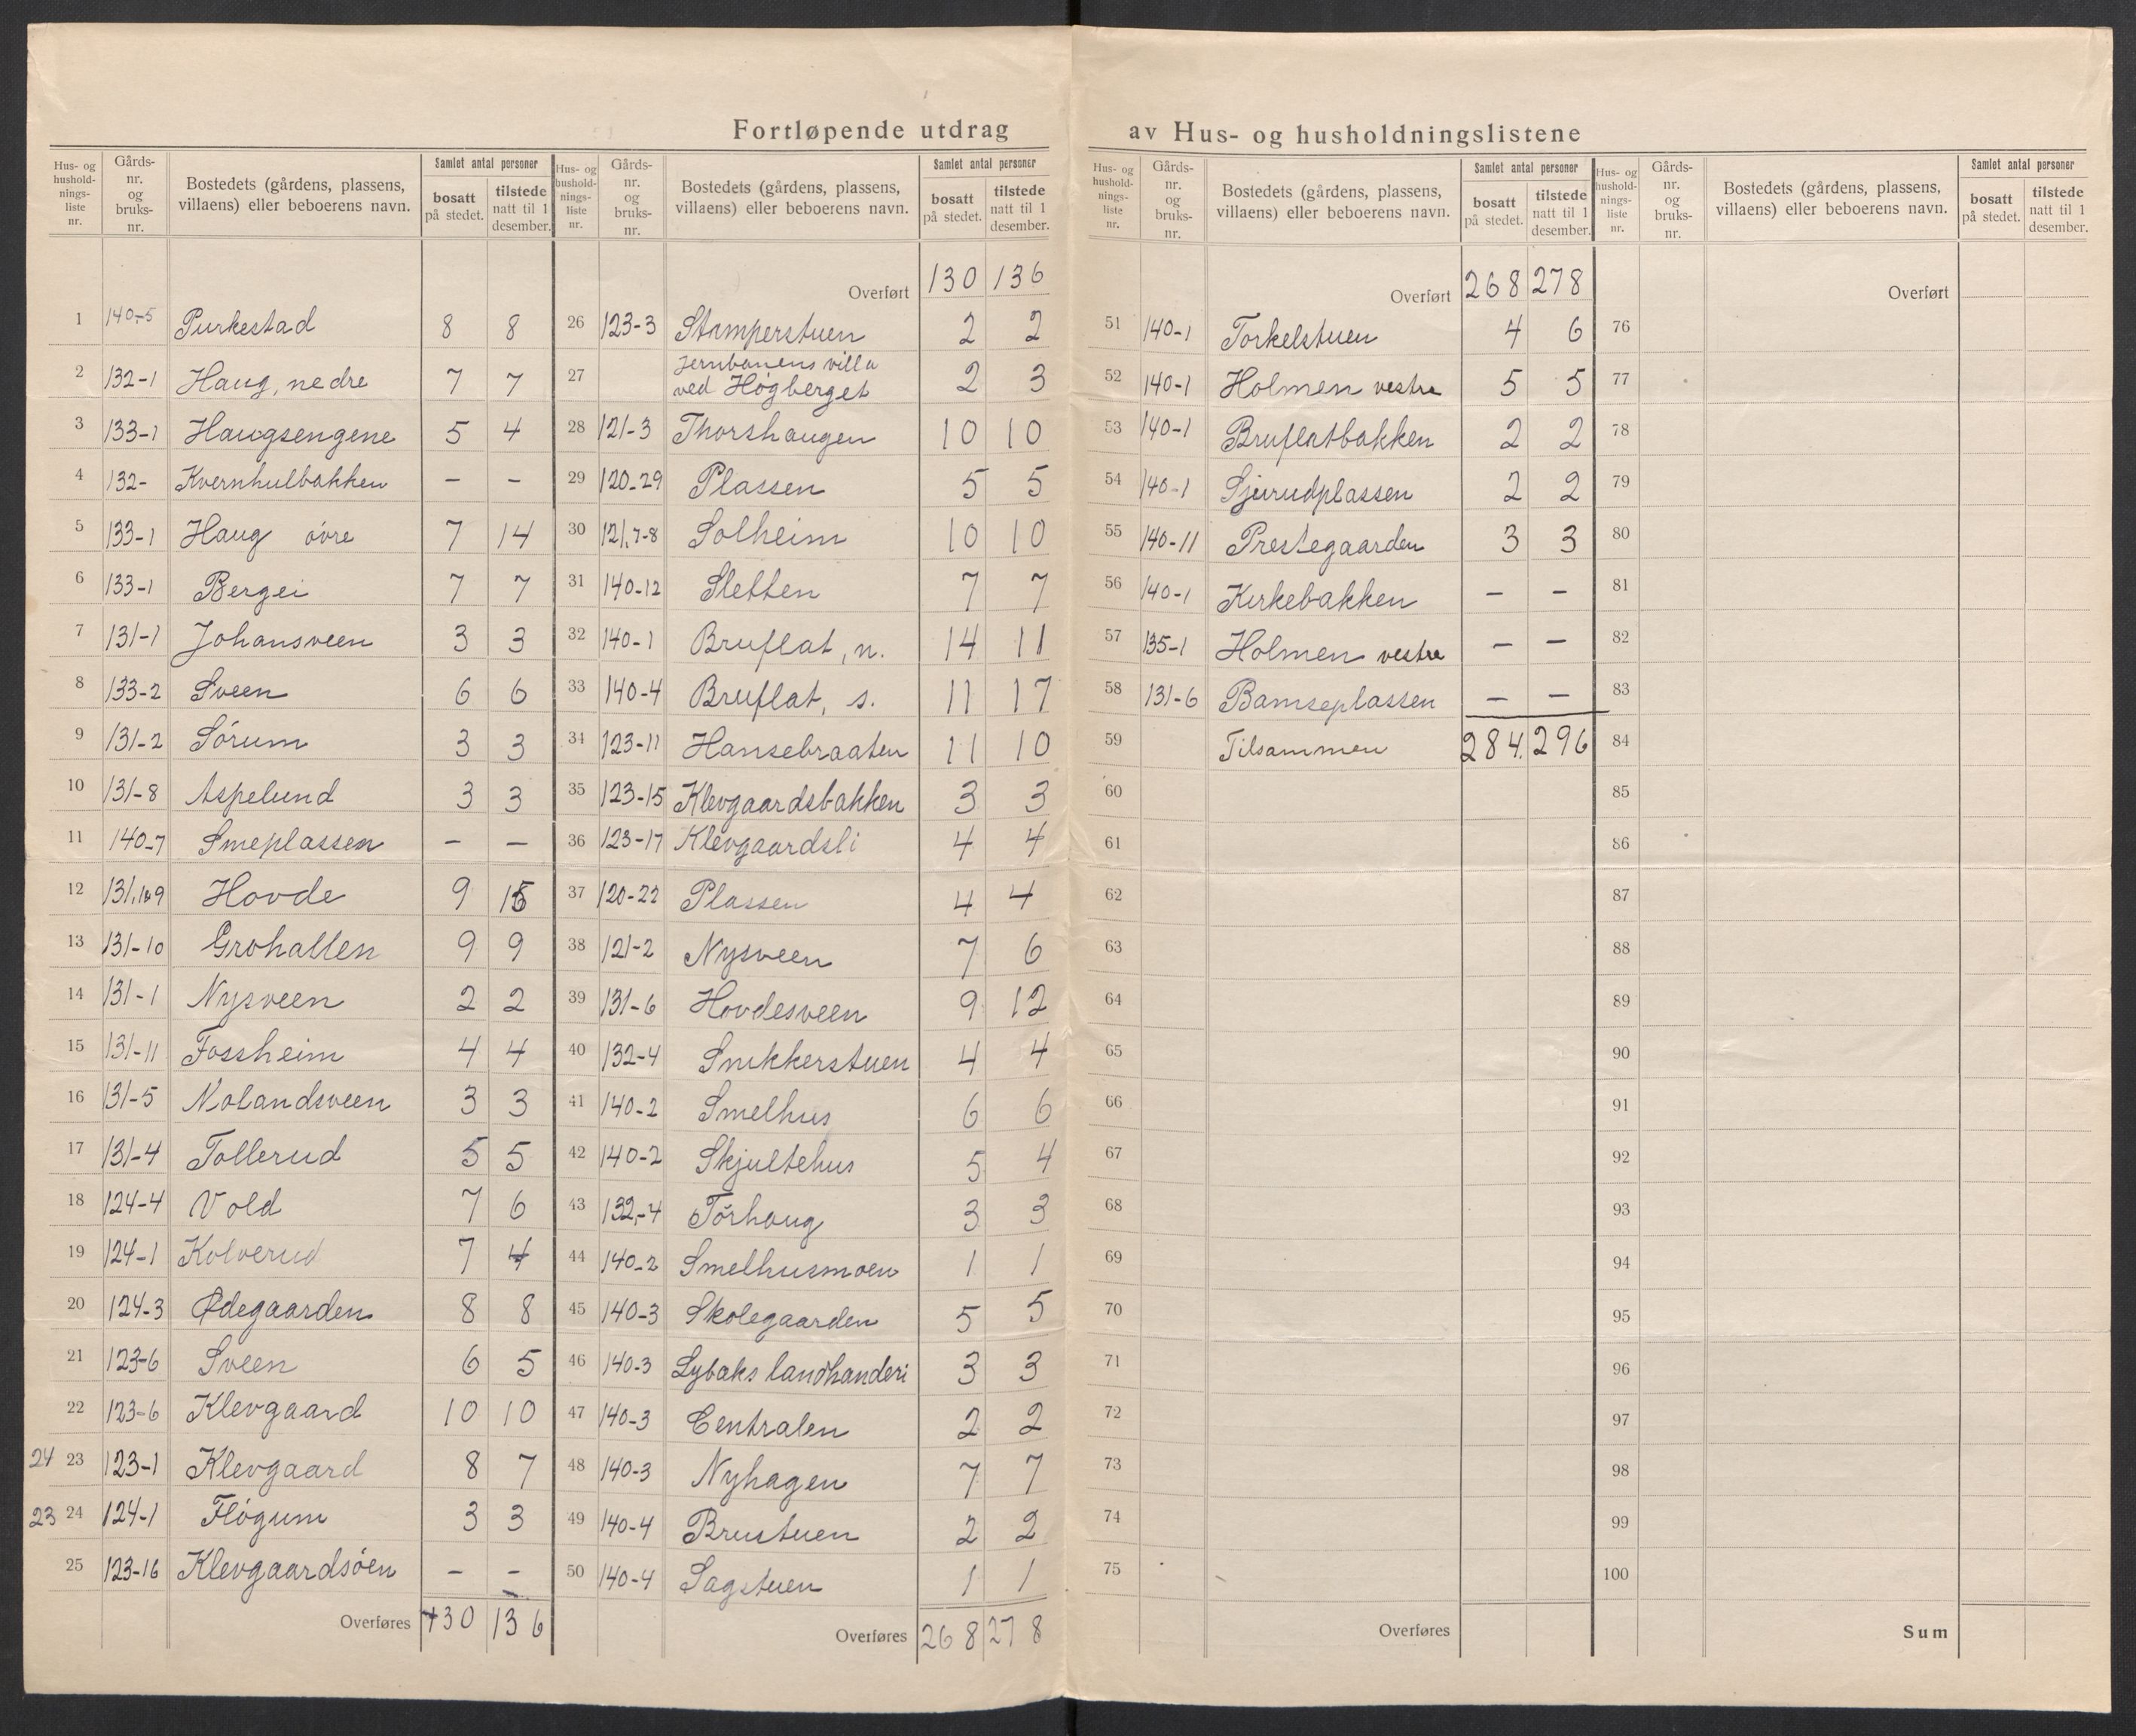 Fortløpende utdrag av Hus- og husholdningslistene
Hus- og husholdnings-liste nr. | Gårds-nr. og bruks-nr. | Bostedets (gårdens, plassens, villaens) eller beboerens navn. | Samlet antal personer bosatt på stedet. | tilstede natt til 1 desember.
1 140-5 Purkestad 8 8
2 132-1 Haug, nedre 7 7
3 133-1 Haugsengene 5 4
4 132- Kvernhulbakken - -
5 133-1 Haug øvre 7 14
6 133-1 Bergei 7 7
7 131-1 Johansveen 3 3
8 133-2 Sveen 6 6
9 131-2 Sørum 3 3
10 131-8 Aspelund 3 3
11 140-7 Smeplassen - -
12 Hovde 9 15
13 131-10 Grohallen 9 9
14 131-1 Nysveen 2 2
15 131-11 Fossheim 4 4
16 131-5 Nolandsveen 3 3
17 131-4 Tollerud 5 5
18 124-4 Vold 7 6
19 124-1 Kolverud 7 4
20 124-3 Ødegaarden 8 8
21 123-6 Sveen 6 5
22 123-6 Klevgaard 10 10
24 23 123-1 Klevgaard 8 7
23 24 124-1 Fløgum 3 3
25 123-16 Klevgaardsøen - -
Overføres 130 136
Hus- og husholdnings-liste nr. | Gårds-nr. og bruks-nr. | Bostedets (gårdens, plassens, villaens) eller beboerens navn. | Samlet antal personer bosatt på stedet. | tilstede natt til 1 desember.
Overført 130 136
26 123-3 Stamperstuen 2 2
27 Jernbanens villa ved Høgberget 2 3
28 121-3 Thorshaugen 10 10
29 120-29 Plassen 5 5
30 121,7-8 Solheim 10 10
31 140-12 Sletten 7 7
32 140-1 Bruflat, n. 14 11
33 140-4 Bruflat, s. 11 17
34 123-11 Hansebraaten 11 10
35 123-15 Klevgaardsbakken 3 3
36 123-17 Klevgaardsli 4 4
37 120-22 Plassen 4 4
38 121-2 Nysveen 7 6
39 131-6 Hovdesveen 9 12
40 132-4 Snikkerstuen 4 4
41 140-2 Smelhus 6 6
42 140-2 Skjultehus 5 4
43 132,-4 Torhaug 3 3
44 140-2 Smelhusmoen 1 1
45 140-3 Skolegaarden 5 5
46 140-3 Lybæks landhanderi 3 3
47 140-3 Centralen 2 2
48 140-3 Nyhagen 7 7
49 140-4 Brustuen 2 2
50 140-4 Sagstuen 1 1
Overføres 268 278
Hus- og husholdnings-liste nr. | Gårds-nr. og bruks-nr. | Bostedets (gårdens, plassens, villaens) eller beboerens navn. | Samlet antal personer bosatt på stedet. | tilstede natt til 1 desember.
Overført 268 278
51 140-1 Torkelstuen 4 6
52 140-1 Holmen vestre 5 5
53 140-1 Bruflatbakken 2 2
54 140-1 Sjurudplassen 2 2
55 140-11 Prestegaarden 3 3
56 140-1 Kirkebakken - -
57 135-1 Holmen vestre - -
58 131-6 Bamseplassen - -
59 Tilsammen 284. 296
60
61
62
63
64
65
66
67
68
69
70
71
72
73
74
75
Overføres
Hus- og husholdnings-liste nr. | Gårds-nr. og bruks-nr. | Bostedets (gårdens, plassens, villaens) eller beboerens navn. | Samlet antal personer bosatt på stedet. | tilstede natt til 1 desember.
Overført
76
77
78
79
80
81
82
83
84
85
86
87
88
89
90
91
92
93
94
95
96
97
98
99
100
Sum